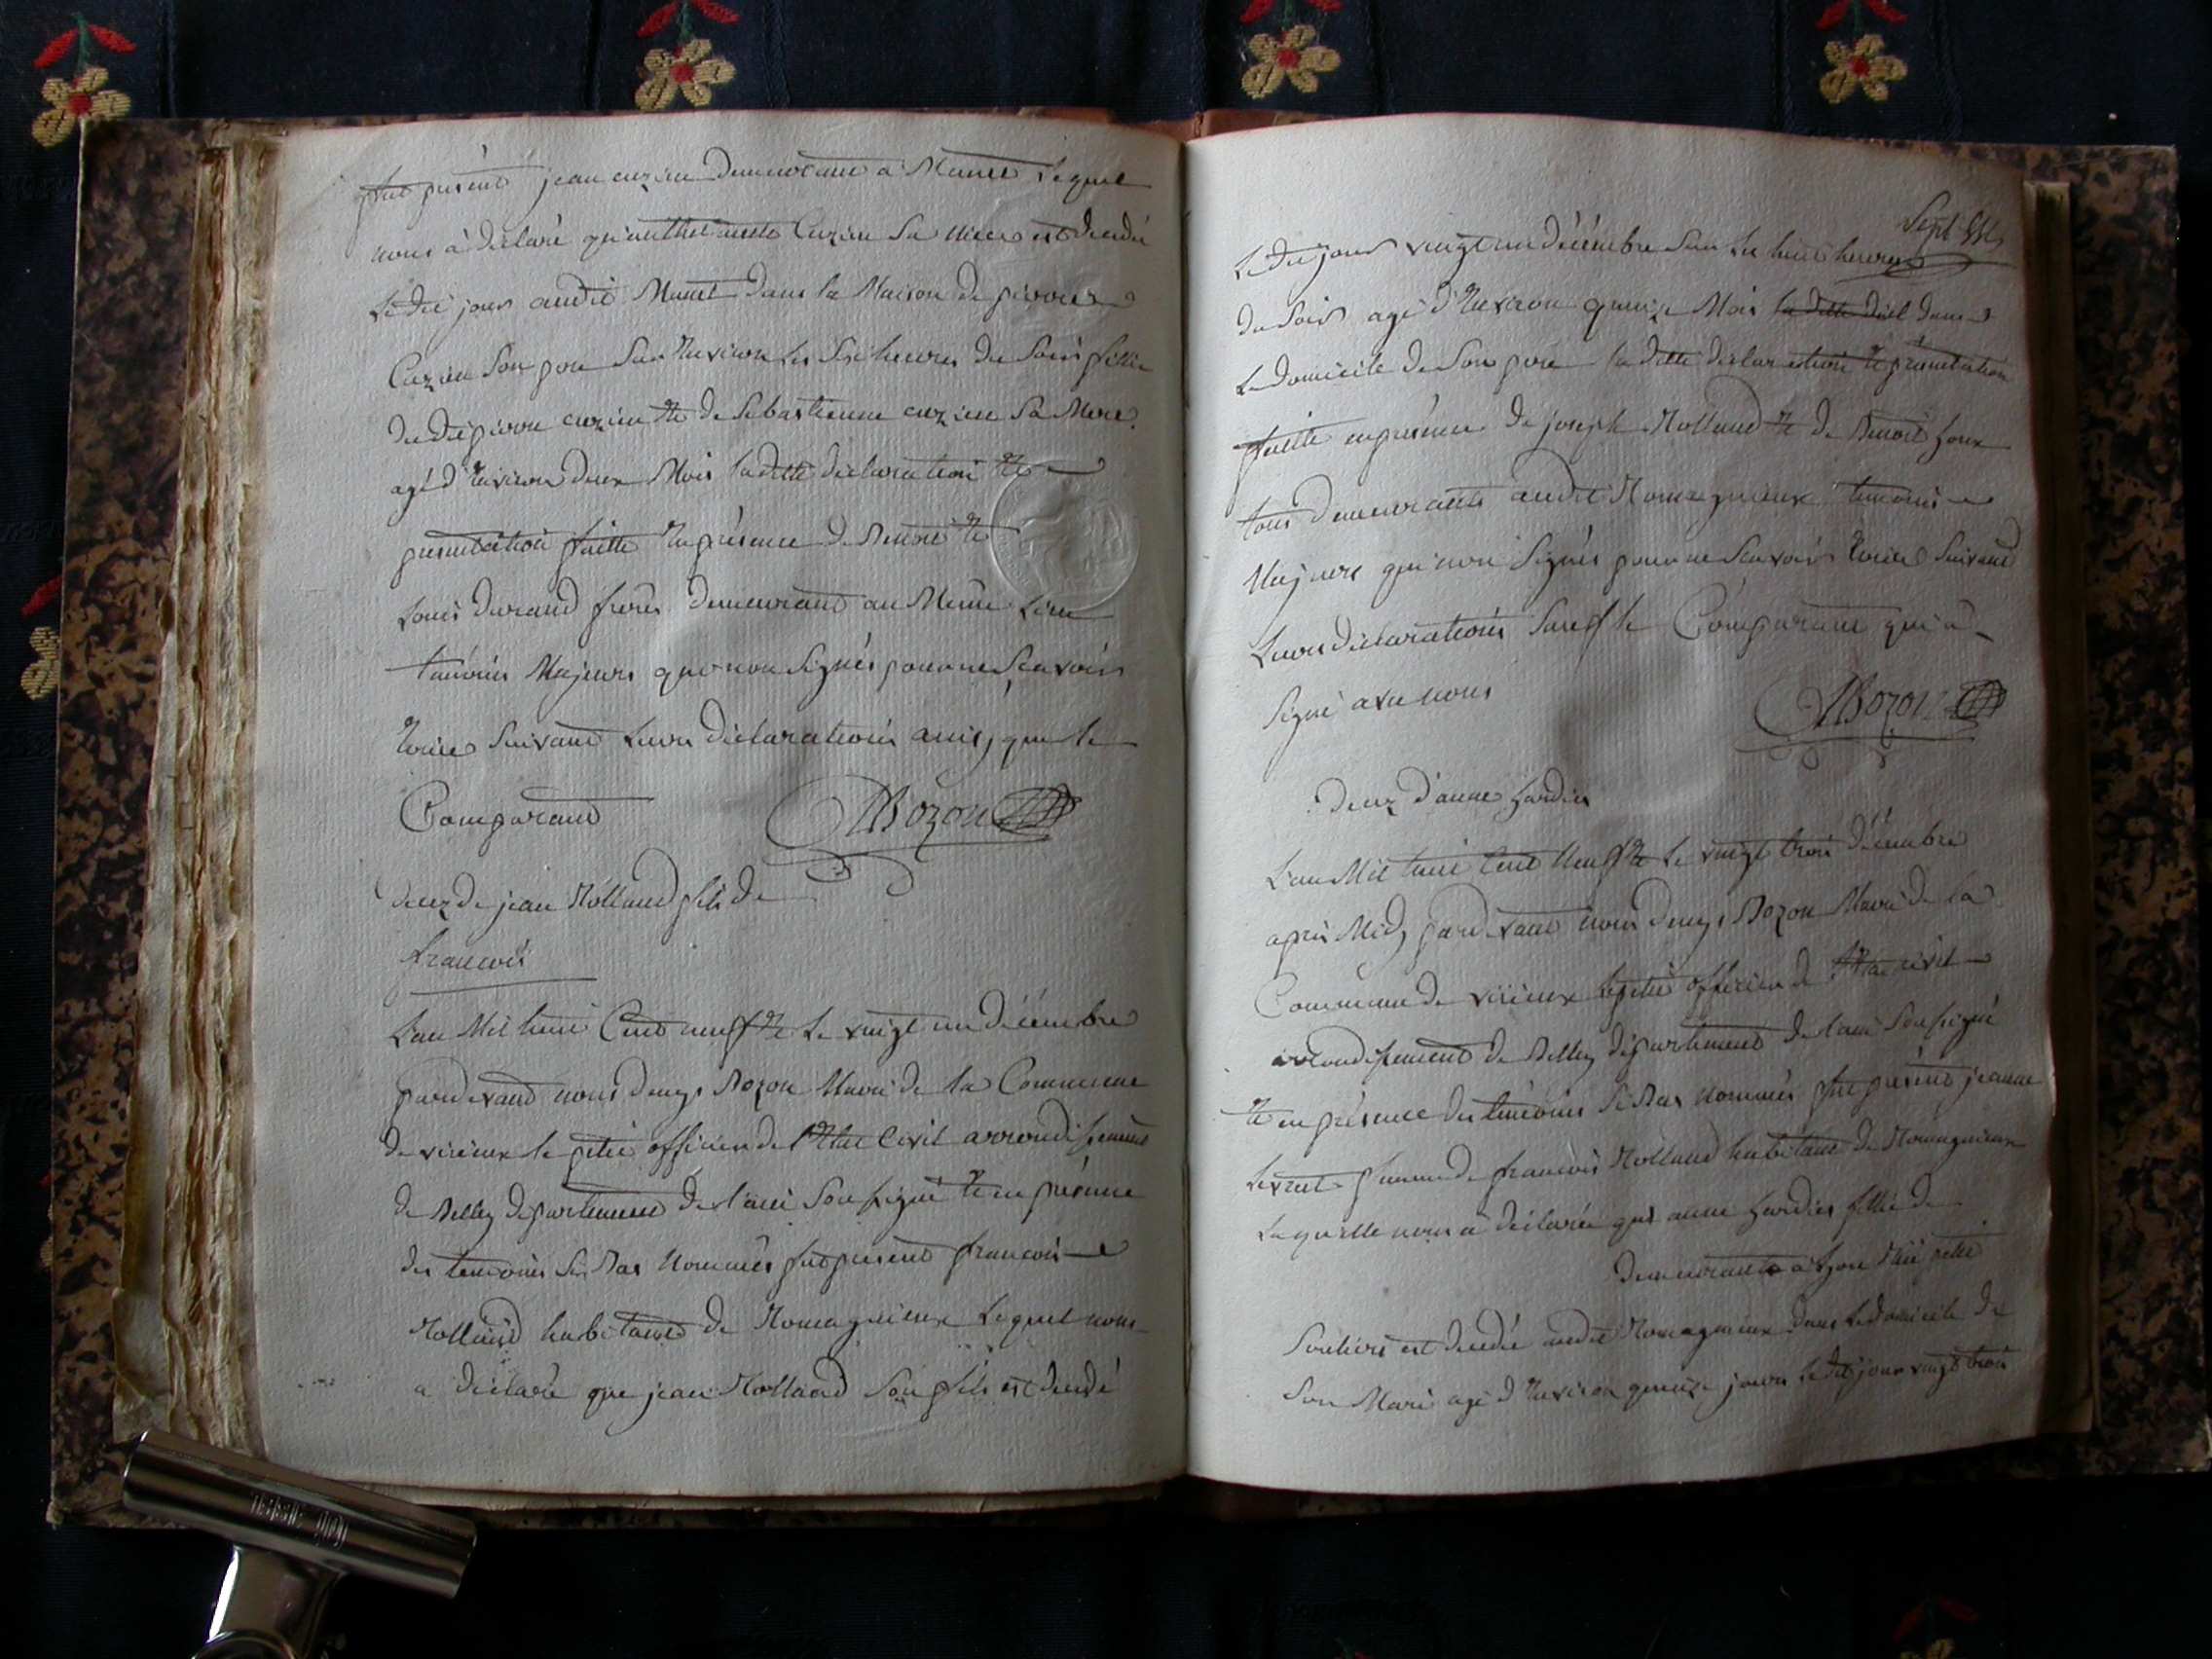 fut présent jean cuzin demeurant a Munet Lequel
nous à declaré Cuzin sa niece est décédé
Le dit jour audit Munet dans la Maison de pierre
Cuzin Son pere Sur Environ les Six heures du Soir fille
du dit pierre cuzin et de Sebastienne cuzin Sa Mere
agé d'Environ deux Mois ladite déclaration et
presentation faitte En présence de Benoit et
Louis durand freres demeurant au Même Lieu
temoins Majeurs qui non Signés pour ne Scavoir
Ecrire Suivant Leurs declarations ainsy que le
Comparant DBozon
decez de jean Rolland fils de
francois
L'an Mil huit Cent neuf et Le vingt un décembre
pardevant nous denys Bozon Maire de la Commune
de virieux le petit officier de l'Etat Civil arrondissement
de Belley departement de l'ain Soussigné et en présence
des temoins Si Bas Nommés fut present francois
Rolland habitant de Romagnieux Lequel nous
a déclaré que jean Rolland Son fils est decedé
Sept
Le dit jour vingt un décembre Sur les huit heures
du Soir agé d'Environ quinze Mois la ditte décl dans
Le domicile de Son pere la ditte déclaration et présentation
faitte en présence de joseph Rolland et de Benoit
tous demeurants audit Romagnieux temoins
Majeurs qui non Signés pour ne Scavoir Ecrire Suivant
Leurs déclarations Sauf le Comparant qui a
Signé avec nous DBozon
decez d'anne hardier
L'an Mil huit Cent Neuf et Le vingt trois décembre
apres Midy pardevant nous denys Bozon Maire de la
Commune de virieux lepetit officier de l'Etat civil
arrondissement de Belley département de l'ain Soussigné
et en présence des temoins Si Bas Nommés fut présent jeanne
femme de francois Rolland habitant de Romagnieux
Laquelle nous a déclarée que anne hardier fille de
demeurants a Lyon Rüe petit
Souliers est decedé audit Romagnieux dans Le domicile de
Son Mari agé d'Environ quinze jours Le dit jour vingt trois